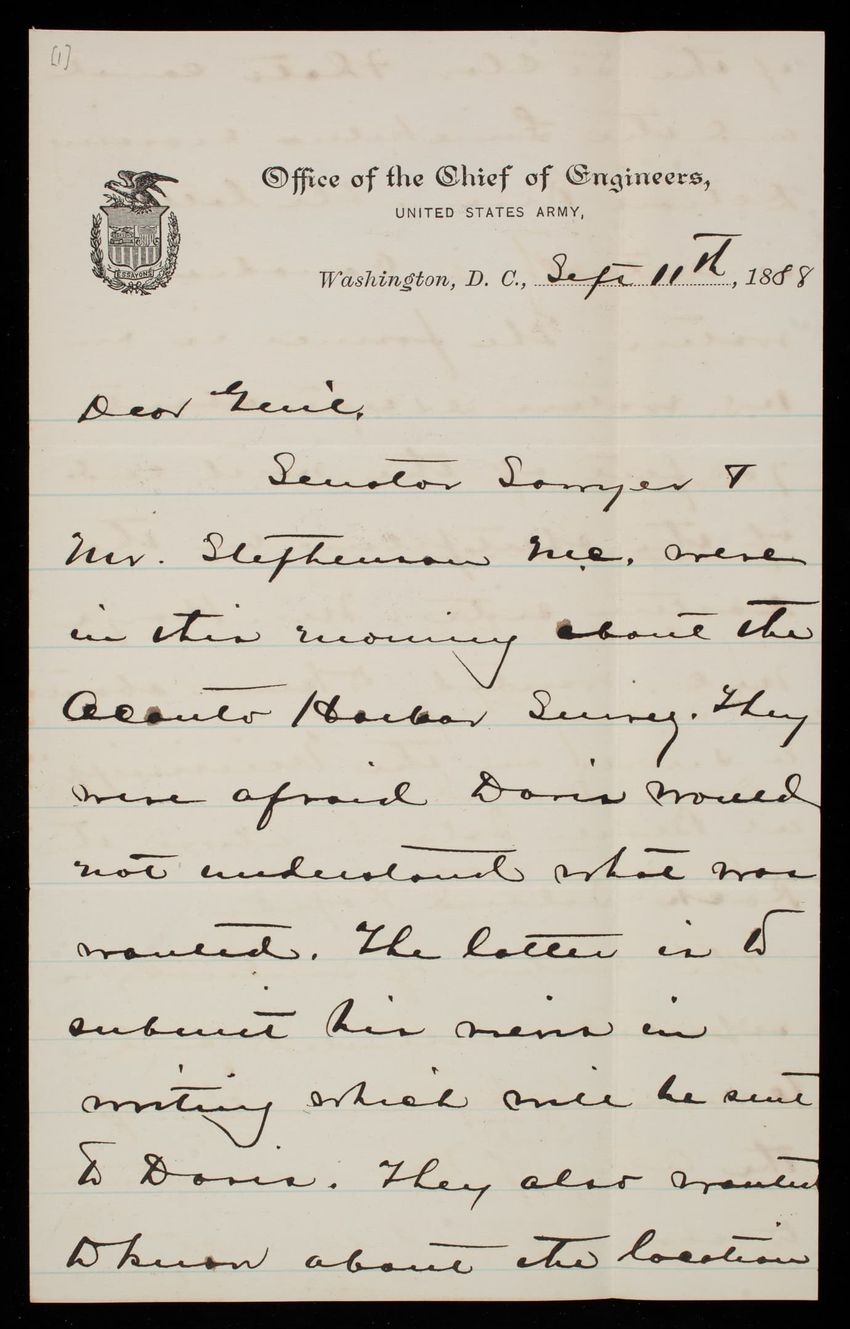 [1]
Office of the Chief of Engineers,
UNITED STATES ARMY,
ESSAYONS
Washington, D. C., Sept 11th, 1888
Dear Gen'l.
Senator Sawyer &
Mr. Stephenson M.C. were
in this morning about the
Oconto Harbor Survey. They
were afraid Davis would
not understand what was
wanted. The latter is to
submit his views in
writing which will be sent
to Davis. They also wanted
to know about the location